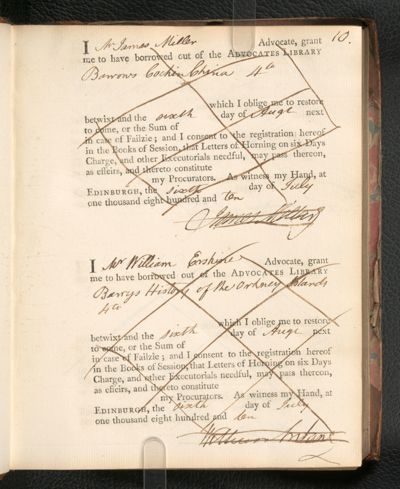 10.
I Mr James Miller Advocate, grant
me to have borrowed out of the ADVOCATES LIBRARY
Barrows Cochin China 4to
which I oblige me to restore
betwixt and the sixth day of Augt next
to come, or the Sum of
in case of Failzie; and I consent to the registration hereof
in the Books of Session, that Letters of Horning on six Days
Charge, and other Executorials needful, may pass thereon,
as effeirs, and thereto constitute
my Procurators. As witness my Hand, at
EDINBURGH, the sixth day of July
one thousand eight hundred and ten
James Miller
I Mr William Erskine Advocate, grant
me to have borrowed out of the ADVOCATES LIBRARY
Barrys History of the Orkney Islands
4to
which I oblige me to restore
betwixt and the sixth day of Augt next
to come, or the Sum of
in case of Failzie; and I consent to the registration hereof
in the Books of Session, that Letters of Horning on six Days
Charge, and other Executorials needful, may pass thereon,
as effeirs, and thereto constitute
my Procurators. As witness my Hand, at
EDINBURGH, the sixth day of July
one thousand eight hundred and ten
William Erskine